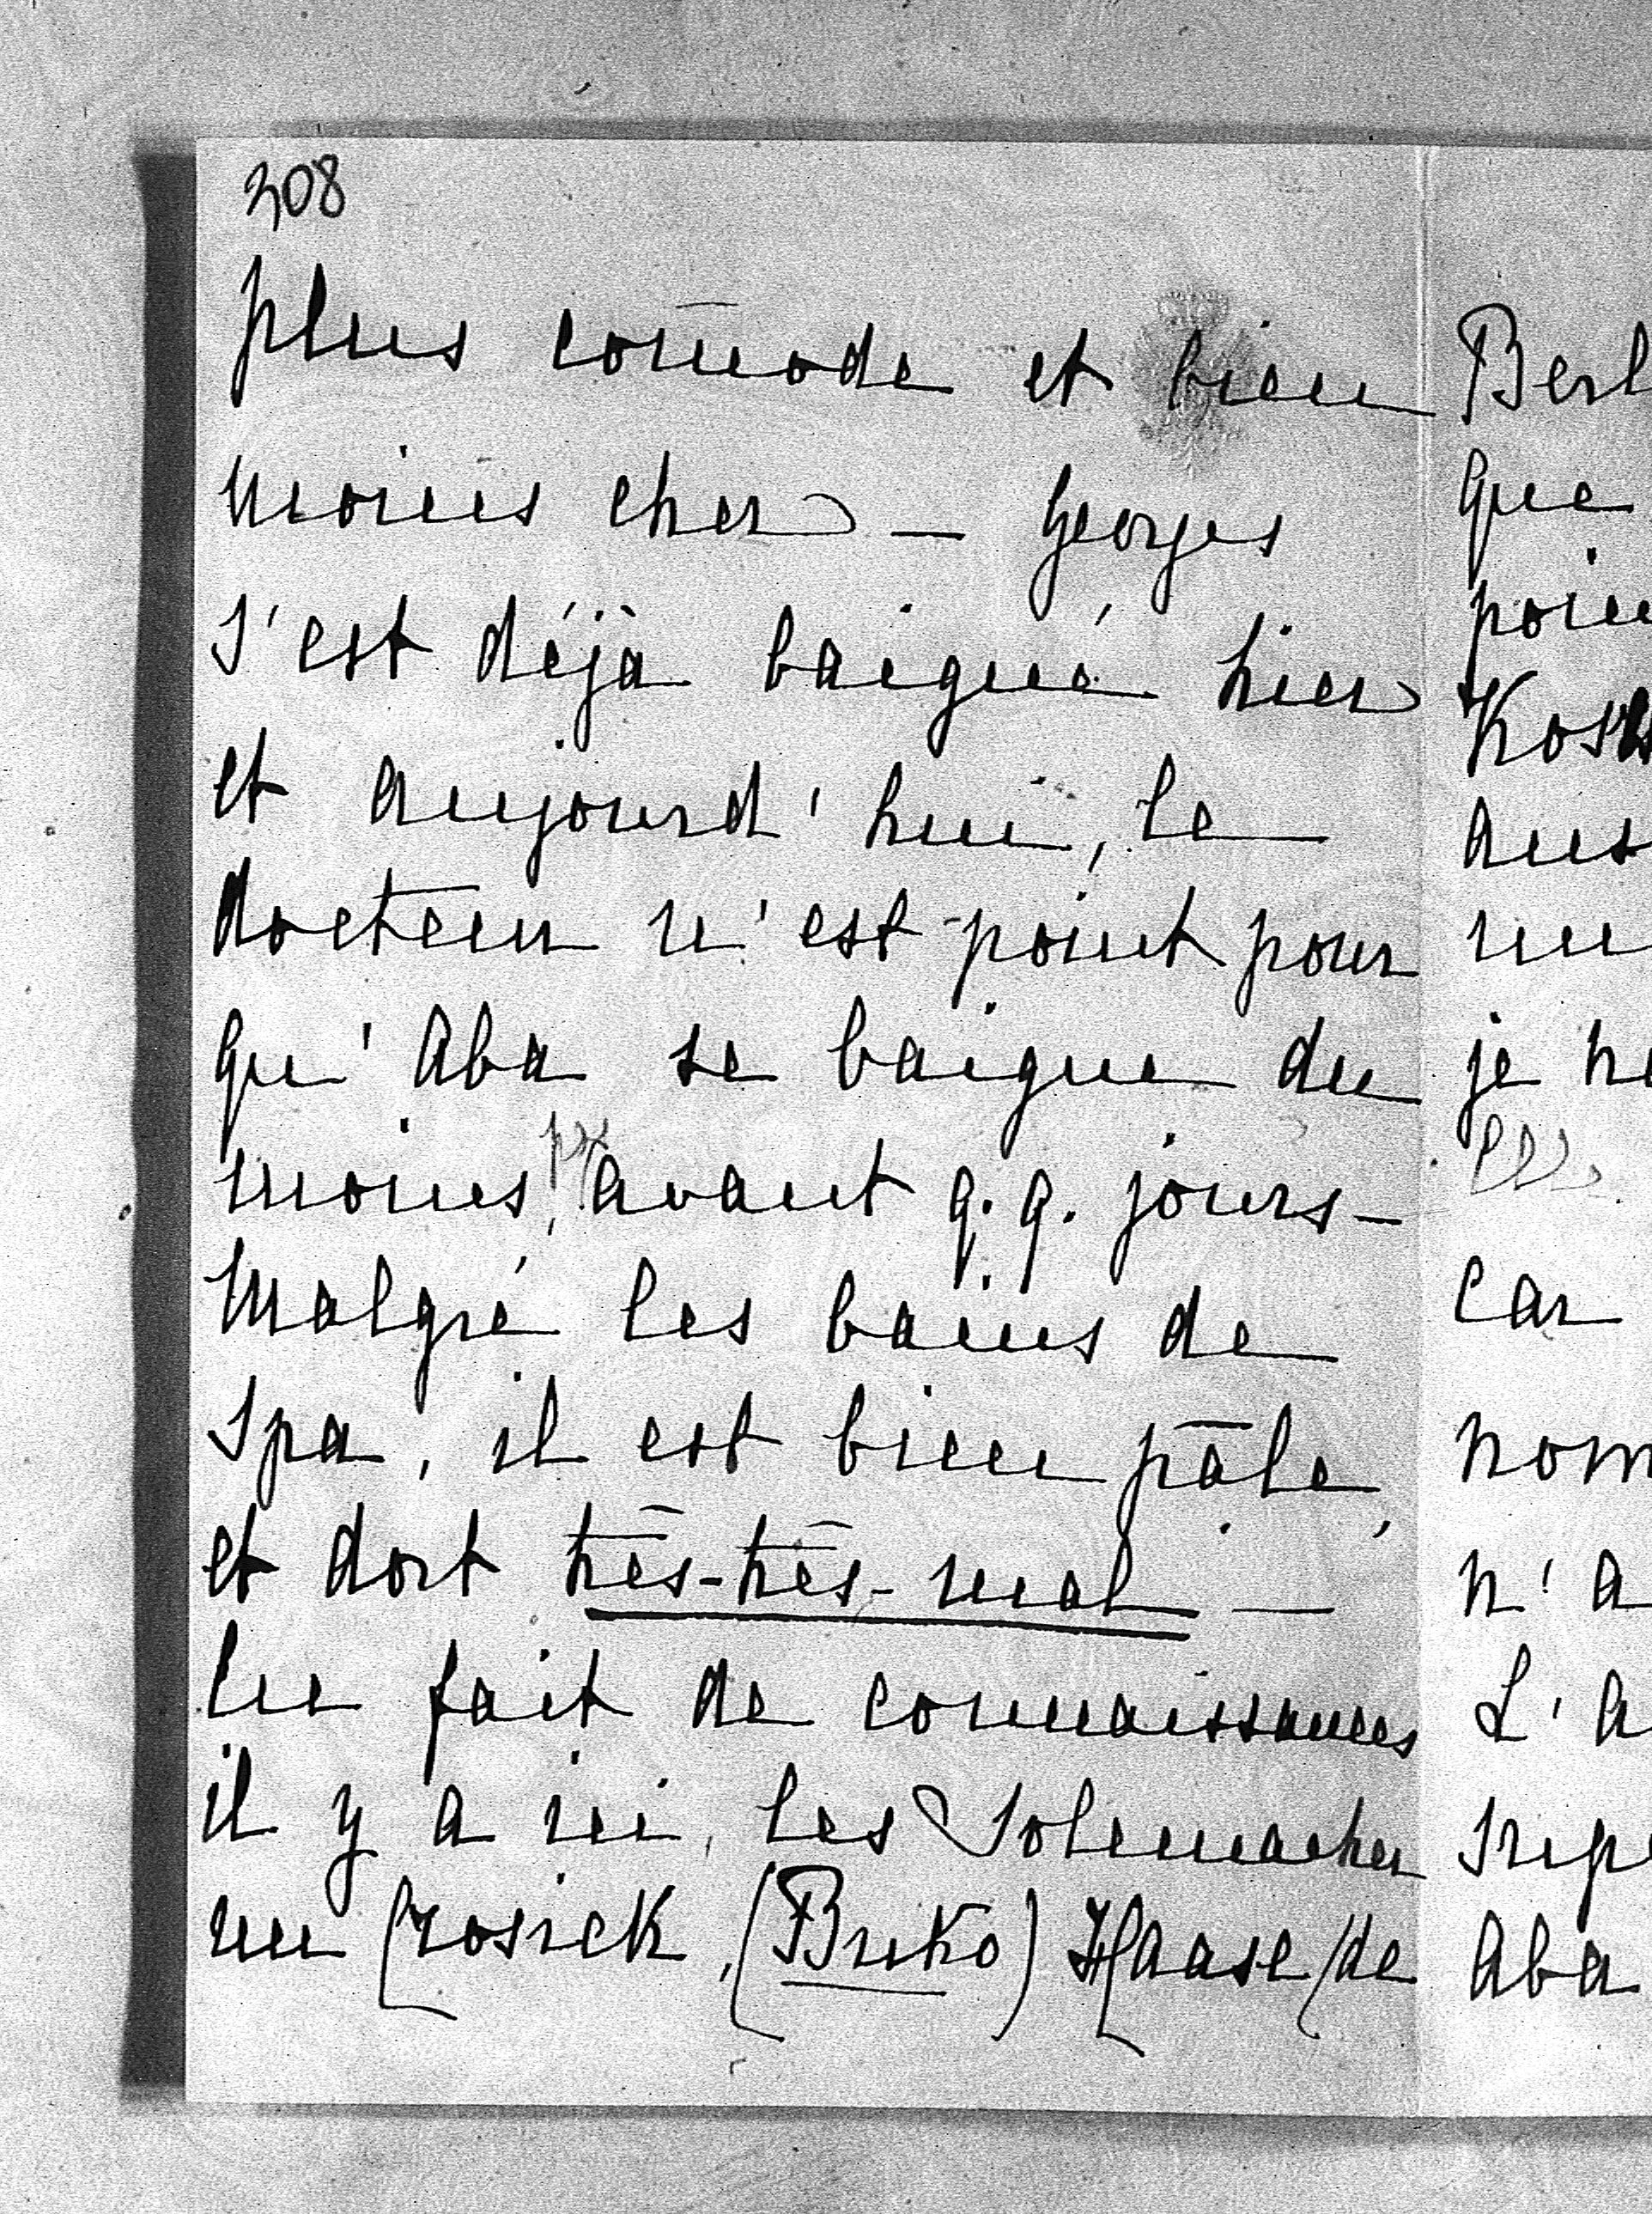 308
plus com̄ode et bien
moins cher — Georges
s'est déjà baigné hier
et aujourd'hui, le
docteur n'est point pour
qu'Aba se baigne du
moins, avant q.q. jours —
Malgré les bains de
Spa, il est bien pâle,
et dort très-très-mal —
En fait de connaissances
il y a ici, les Solemacher
un Crosick, (Buko) Haase (de
Berl
que
poin
Kos
aus
un
je ne
car
nom
n'a
L'a
supe
Aba